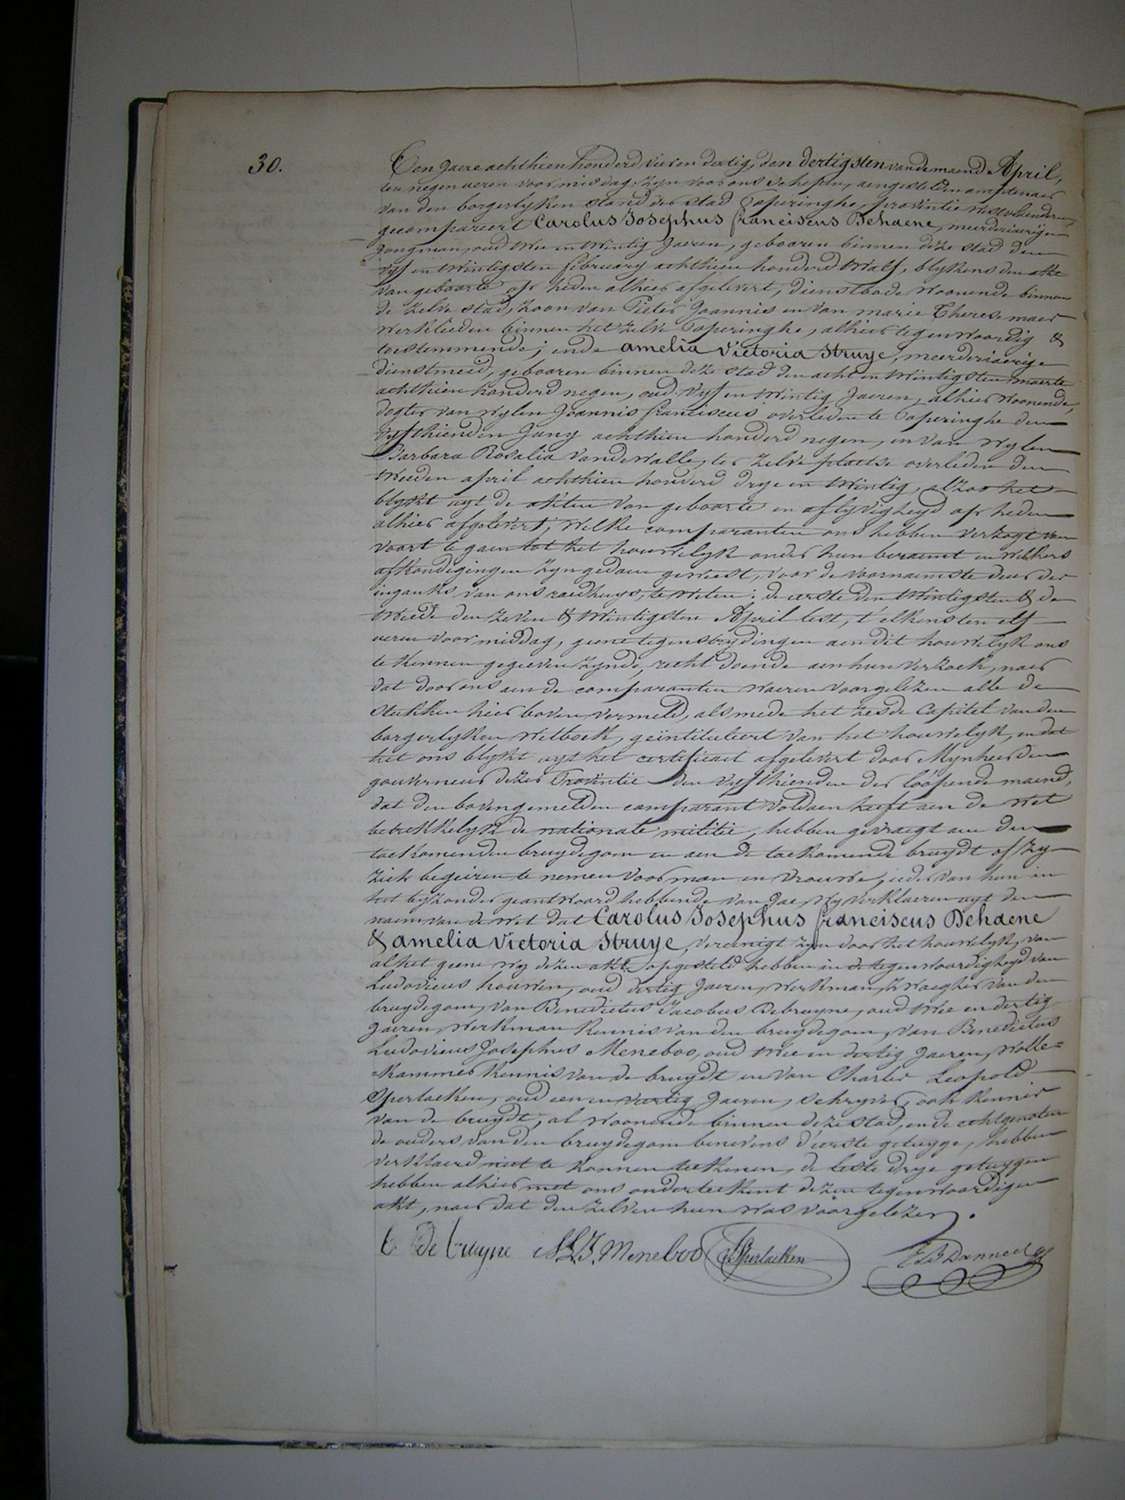 30.
Den jaere achthien honderd vier en dertig, den dertigsten van de maend April,
ten negen ueren voormiddag, zyn voor ons schepen, aengestelden amptenaer
van den borgerlyken stand der stad Poperinghe, provintie westvlaenderen,
gecompareert Carolus Josephus Franciscus Dehaene, meerderjaerigen
jongman, oud twee en twintig Jaeren, gebooren binnen deze stad den
vyf en twintigsten february achthien honderd twalf, blykens den akte
van geboorte op heden alhier afgelevert, dienstbode woonende binnen
de zelve stad, zoon van Pieter Joannis en van Marie Therese maes
werklieden binnen het zelve Poperinghe, alhier tegenwoordig &
toestemmende; ende Amelia Victoria Struye, meerderjaerige
dienstmeid, gebooren binnen deze stad den acht en twintigsten maerte
achthien honderd negen, oud vyf en twintig Jaeren, alhier woonende,
dogter van wylen Joannis franciscus overleden te Poperinghe den
vyfthienden Juny achthien honderd negen, en van wylen
Barbara Rosalia Vandewalle, ter zelve plaetse overleden den
tweeden april achthien honderd drye en twintig, alzoo het
blykt uyt de akten van geboorte en aflyvigheyd op heden
alhier afgelevert; welke comparanten ons hebben verzogt van
voort te gaen tot het houwelyk onder hun beraemt en welkers
afkondigingen zyn gedaen geweest, voor de voornaemste deur der
inganks van ons raedhuys, te weten: de eerste den twintigsten & de
tweede den zeven & twintigsten April lest, t'elkens ten elf
ueren voormiddag, geene tegensbydingen aen dit houwelyk ons
te kennen gegeeven zynde, recht doende aen hun verzoek, naer
dat door ons aen de comparanten waeren voorgelezen alle de
stukken hier boven vermeld, alsmede het zesde Capitel van den
borgerlyken wetboek, geïntituleert van het houwelyk, en dat
het ons blykt uyt het certificaet afgelevert door Mynheer den
gouverneur dezer Provintie den vyfthienden der loopende maend,
dat den bovengemelden comparant voldaen heeft aen de wet
betrekkelyk de nationale militie, hebben gevraegt aen den
toekomenden bruydegom en aen de toekomende bruydt of zy
zich begeiren te nemen voor man en vrouwe, ieder van hun in
het byzonder geantwoord hebbende van jae, wy verklaeren uyt den
naem van de wet dat Carolus Josephus franciscus Dehaene
& Amelia Victoria Struye, vereenigt zyn door het houwelyk, van
al het geene wy dezen akt opgesteld hebben in de tegenwoordigheyd van
Ludovicus houwen, oud dertig Jaeren, werkman, zwaegher van den
bruydegom, van Benedictus Jacobus Debruyne, oud twee en dertig
Jaeren, werkman kennis van den bruydegom, van Benedictus
Ludovicus Josephus Meneboo, oud twee en dertig Jaeren, wolle=
=kammer kennis van de bruydt en van Charles Leopold
Sperlaeken, oud een en veertig Jaeren, schryver, ook kennis
van de bruydt, al woonende binnen deze stad, ende echtgenoten
de ouders van den bruydegom benevens d'eerste getuyge, hebben
verklaerd niet te konnen teekenen, de leste drye getuygen
hebben alhier met ons onderteekent dezen tegenwoordigen
akt, naer dat den zelven hun was voorgelezen.
B De bruyne B.L.J. Meneboo Sperlaeken